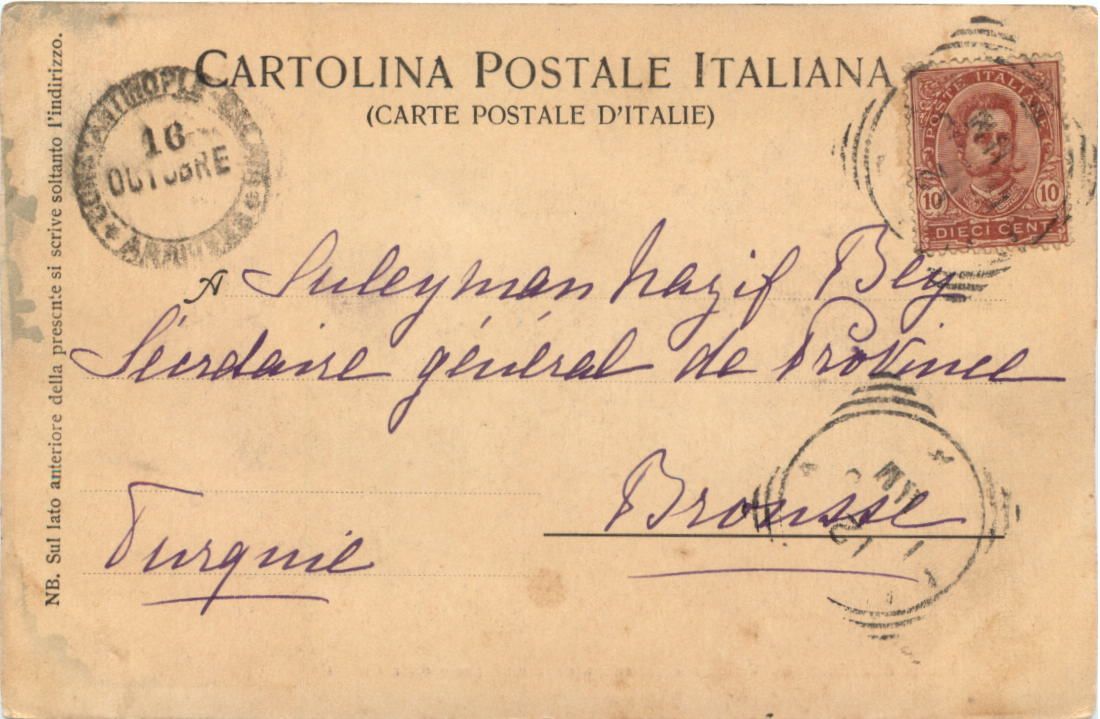 CARTOLINA POSTALE ITALIANA
(CARTE POSTALE D'ITALIE)
NB. Sul lato anteriore della presente si scrive soltanto l'indirizzo.
CONSTANTINOPLE
16
OCTOBRE
POSTE ITALIANE
10 10
DIECI CENT
A Suleyman Nazif Bey
Sécrétaire général de Province
Brousse
Turquie